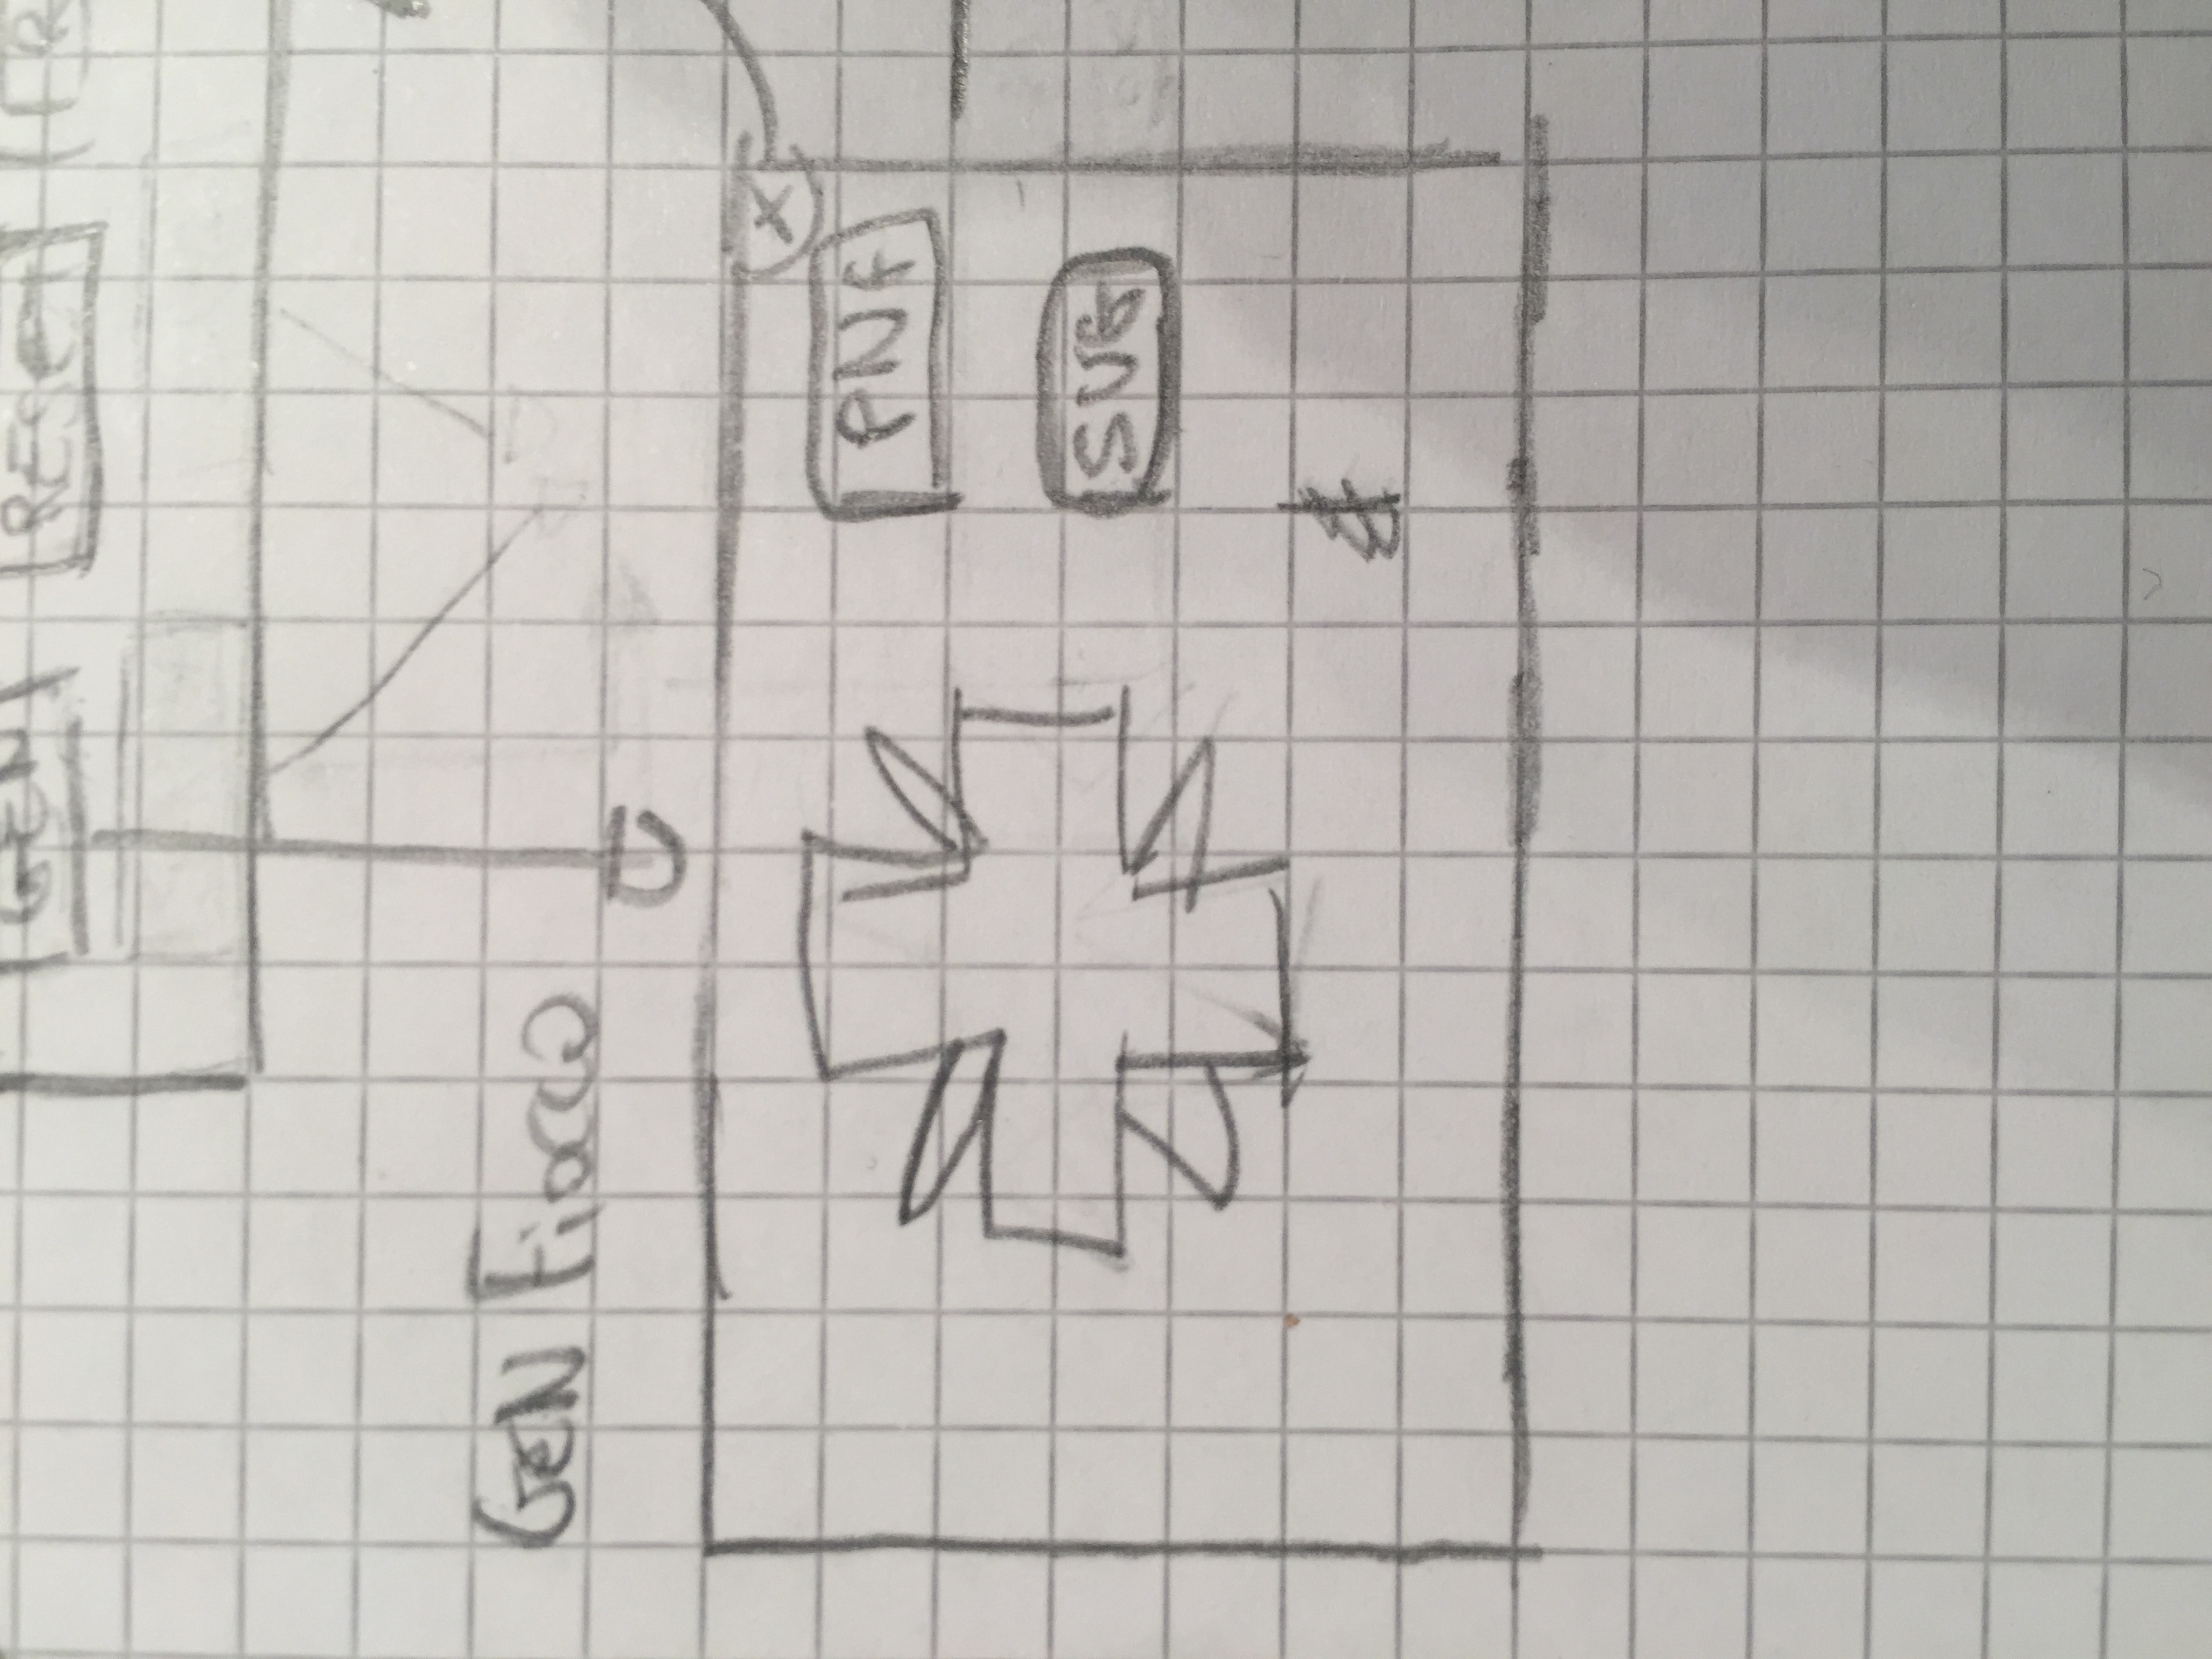 GEN RESET
GEN Fiocco
X
PNG
SVG